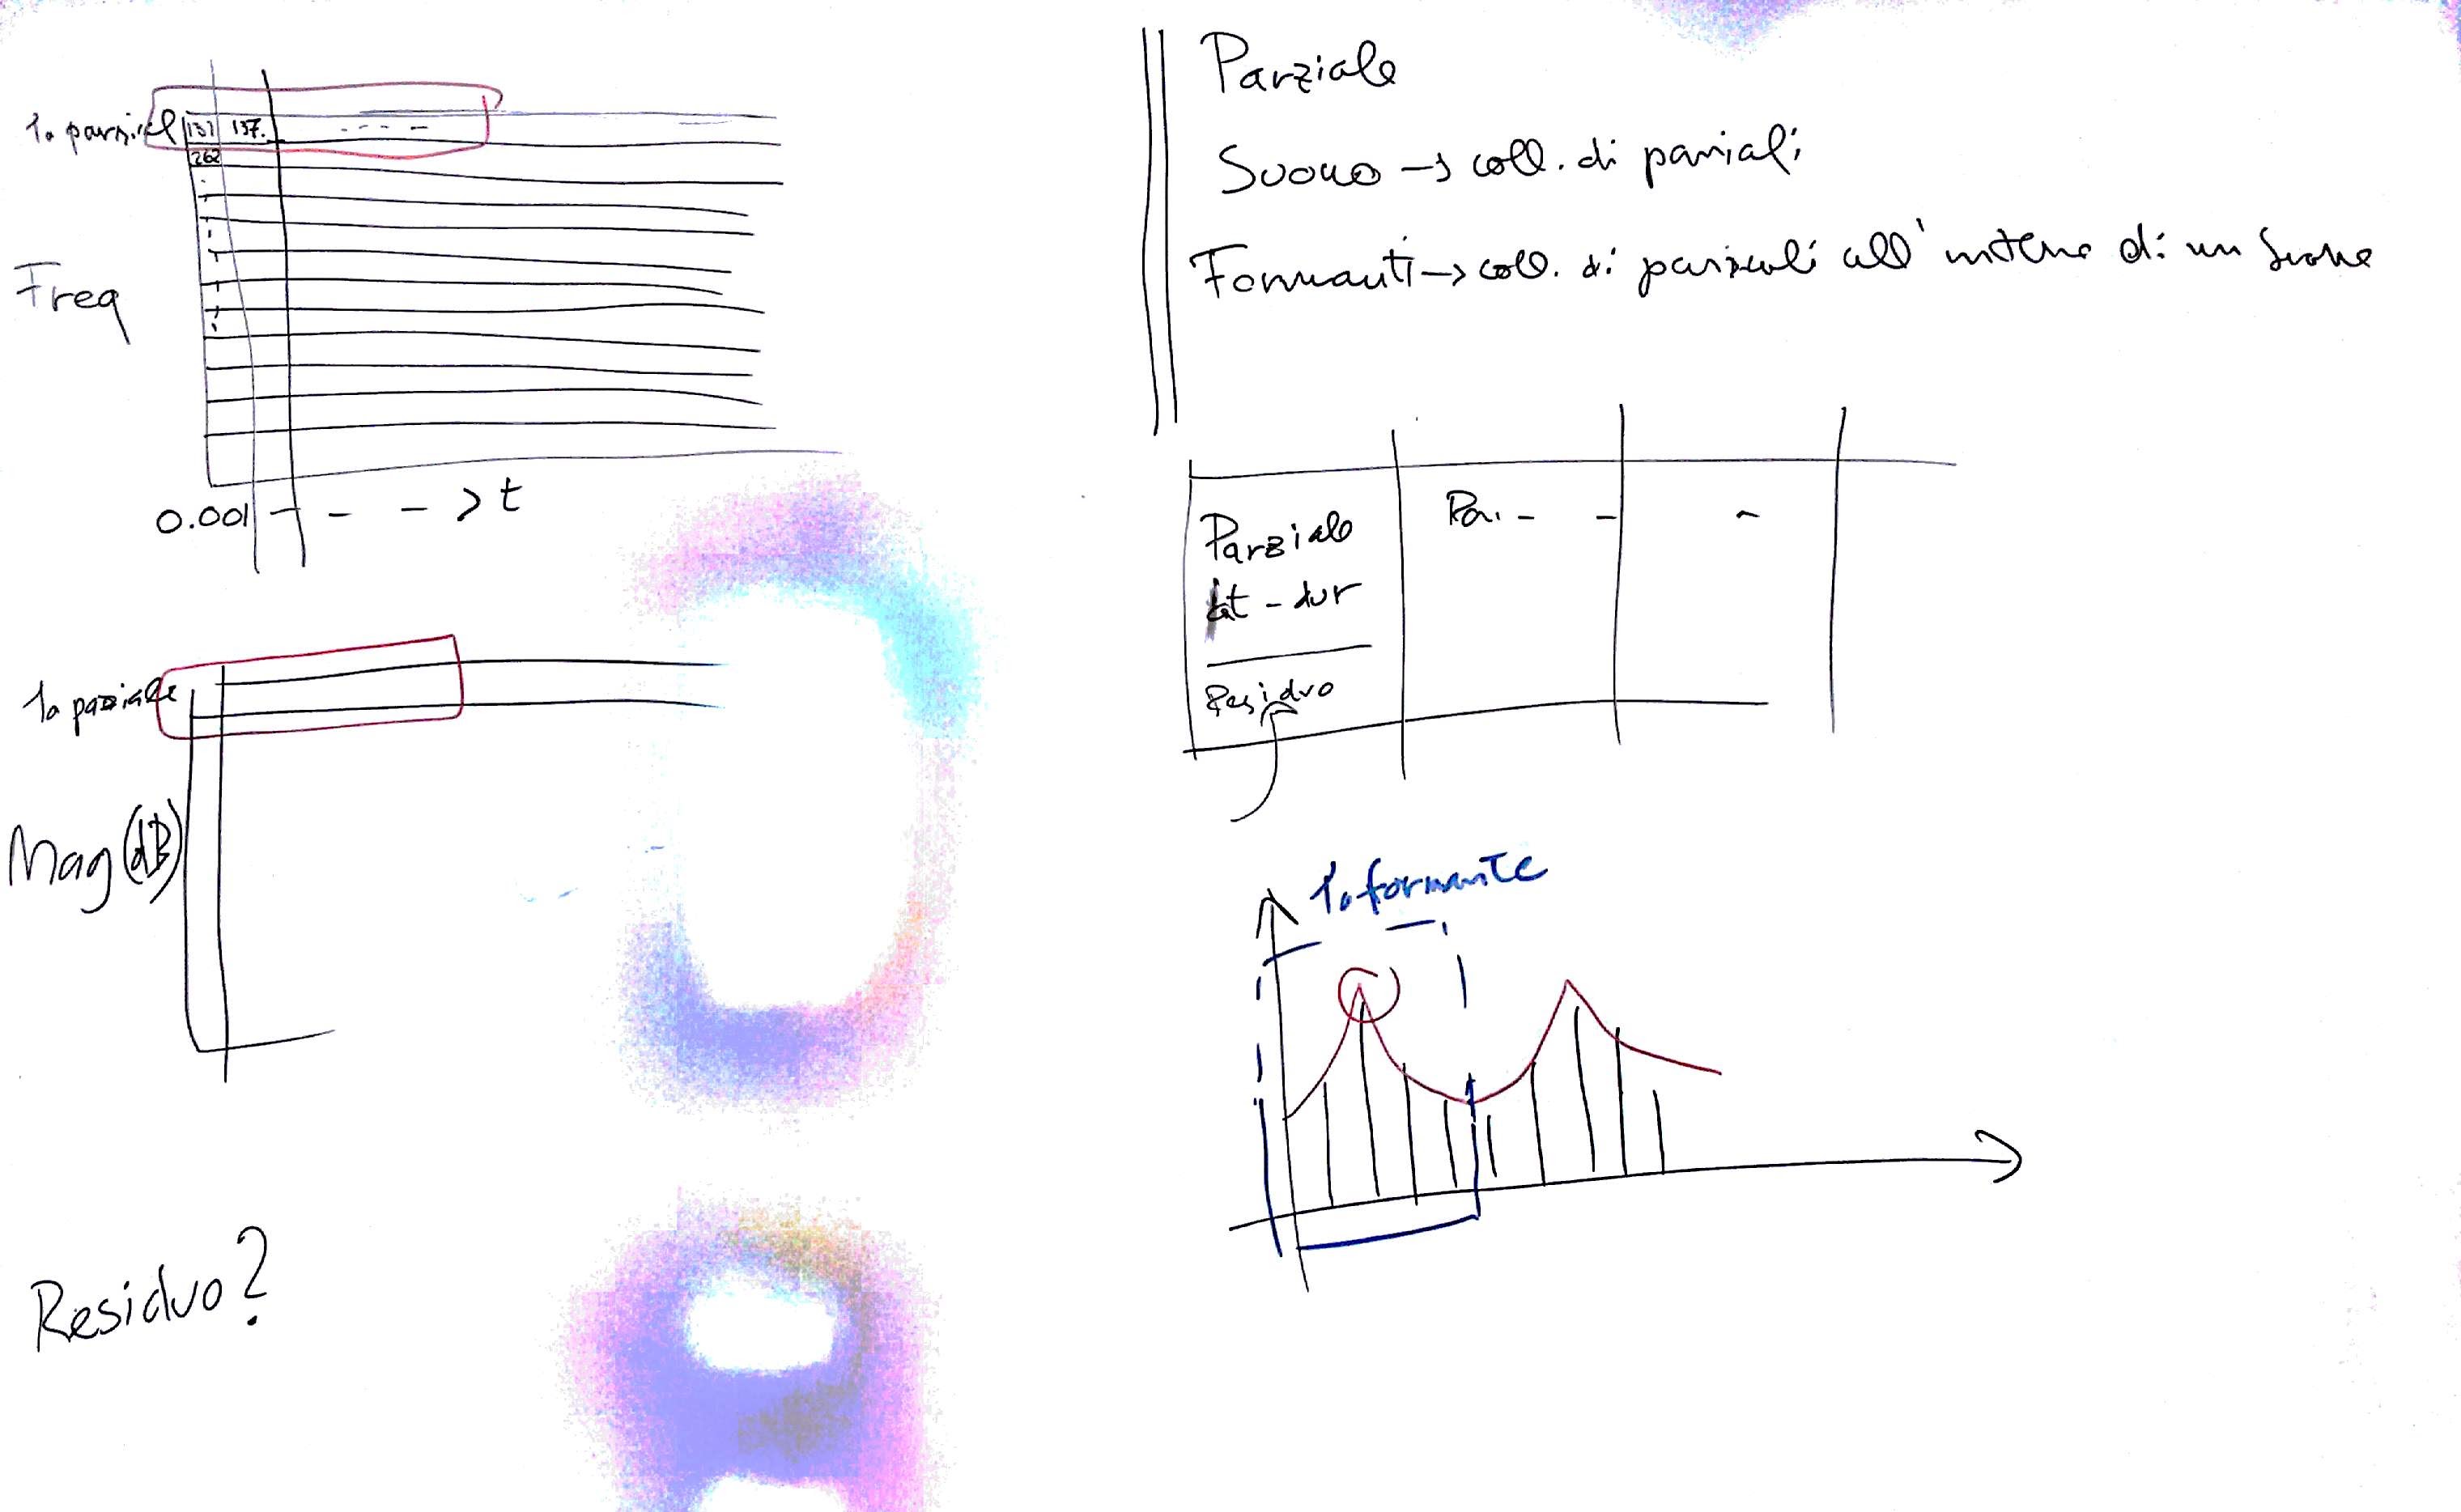 1a parziale
131 137.
262
Freq
0.001 - - - > t
1a parziale
Mag (dB)
Residuo?
Parziale
Suono → coll. di parziali
Formanti → coll. di parziali all'interno di un suono
Parziale
- dur
Residuo
Par. - -
1a formante